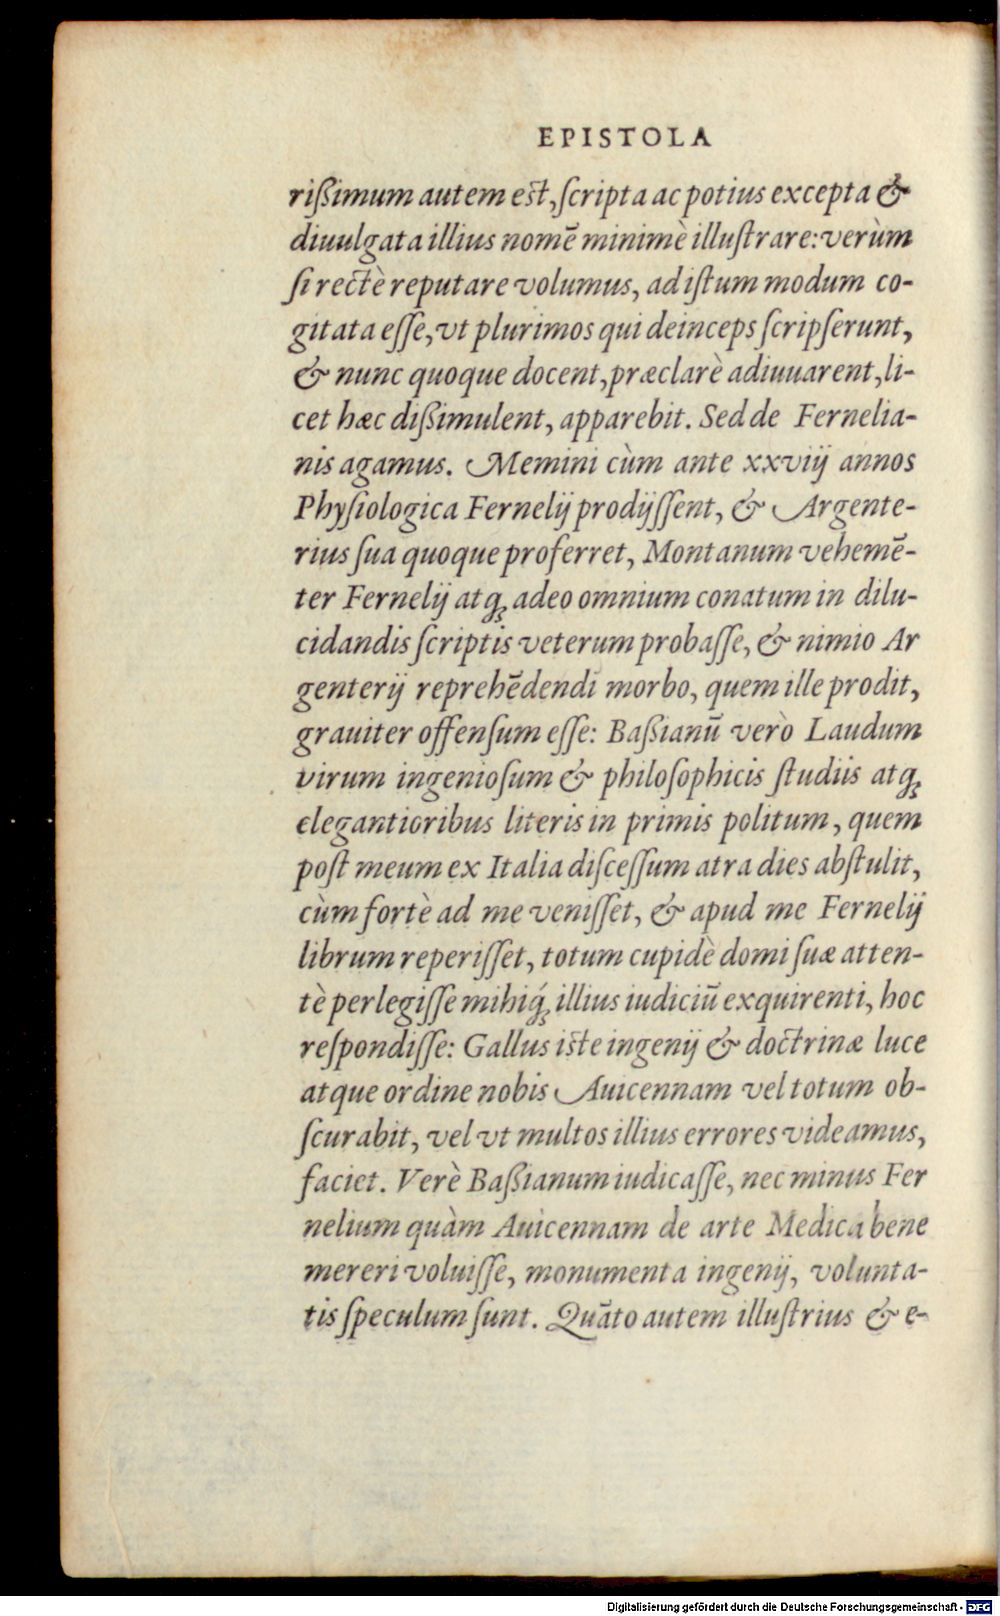 EPISTOLA
rißimum autem est, ſcripta ac potius excepta &
diuulgata illius nomē minimè illuſtrare: verùm
ſi rectè reputare volumus, ad iſtum modum co-
gitata eſſe, vt plurimos qui deinceps ſcripſerunt,
& nunc quoque docent, præclarè adiuuarent, li-
cet hæc dißimulent, apparebit. Sed de Fernelia-
nis agamus. Memini cùm ante xxviij annos
Phyſiologica Fernelij prodijſſent, & Argente-
rius ſua quoque proferret, Montanum vehemē-
ter Fernelij atq; adeo omnium conatum in dilu-
cidandis ſcriptis veterum probaſſe, & nimio Ar
genterij reprehēdendi morbo, quem ille prodit,
grauiter offenſum eſſe: Baßianū verò Laudum
virum ingenioſum & philoſophicis ſtudiis atq;
elegantioribus literis in primis politum, quem
poſt meum ex Italia diſceſſum atra dies abſtulit,
cùm fortè ad me veniſſet, & apud me Fernelij
librum reperiſſet, totum cupidè domi ſuæ atten-
tè perlegiſſe mihiq́; illius iudiciū exquirenti, hoc
reſpondiſſe: Gallus iste ingenij & doctrinæ luce
atque ordine nobis Auicennam vel totum ob-
ſcurabit, vel vt multos illius errores videamus,
faciet. Verè Baßianum iudicaſſe, nec minus Fer
nelium quàm Auicennam de arte Medica bene
mereri voluiſſe, monumenta ingenij, volunta-
tis ſpeculum ſunt. Quāto autem illuſtrius & e-
Digitalisierung gefördert durch die Deutsche Forschungsgemeinschaft - DFG